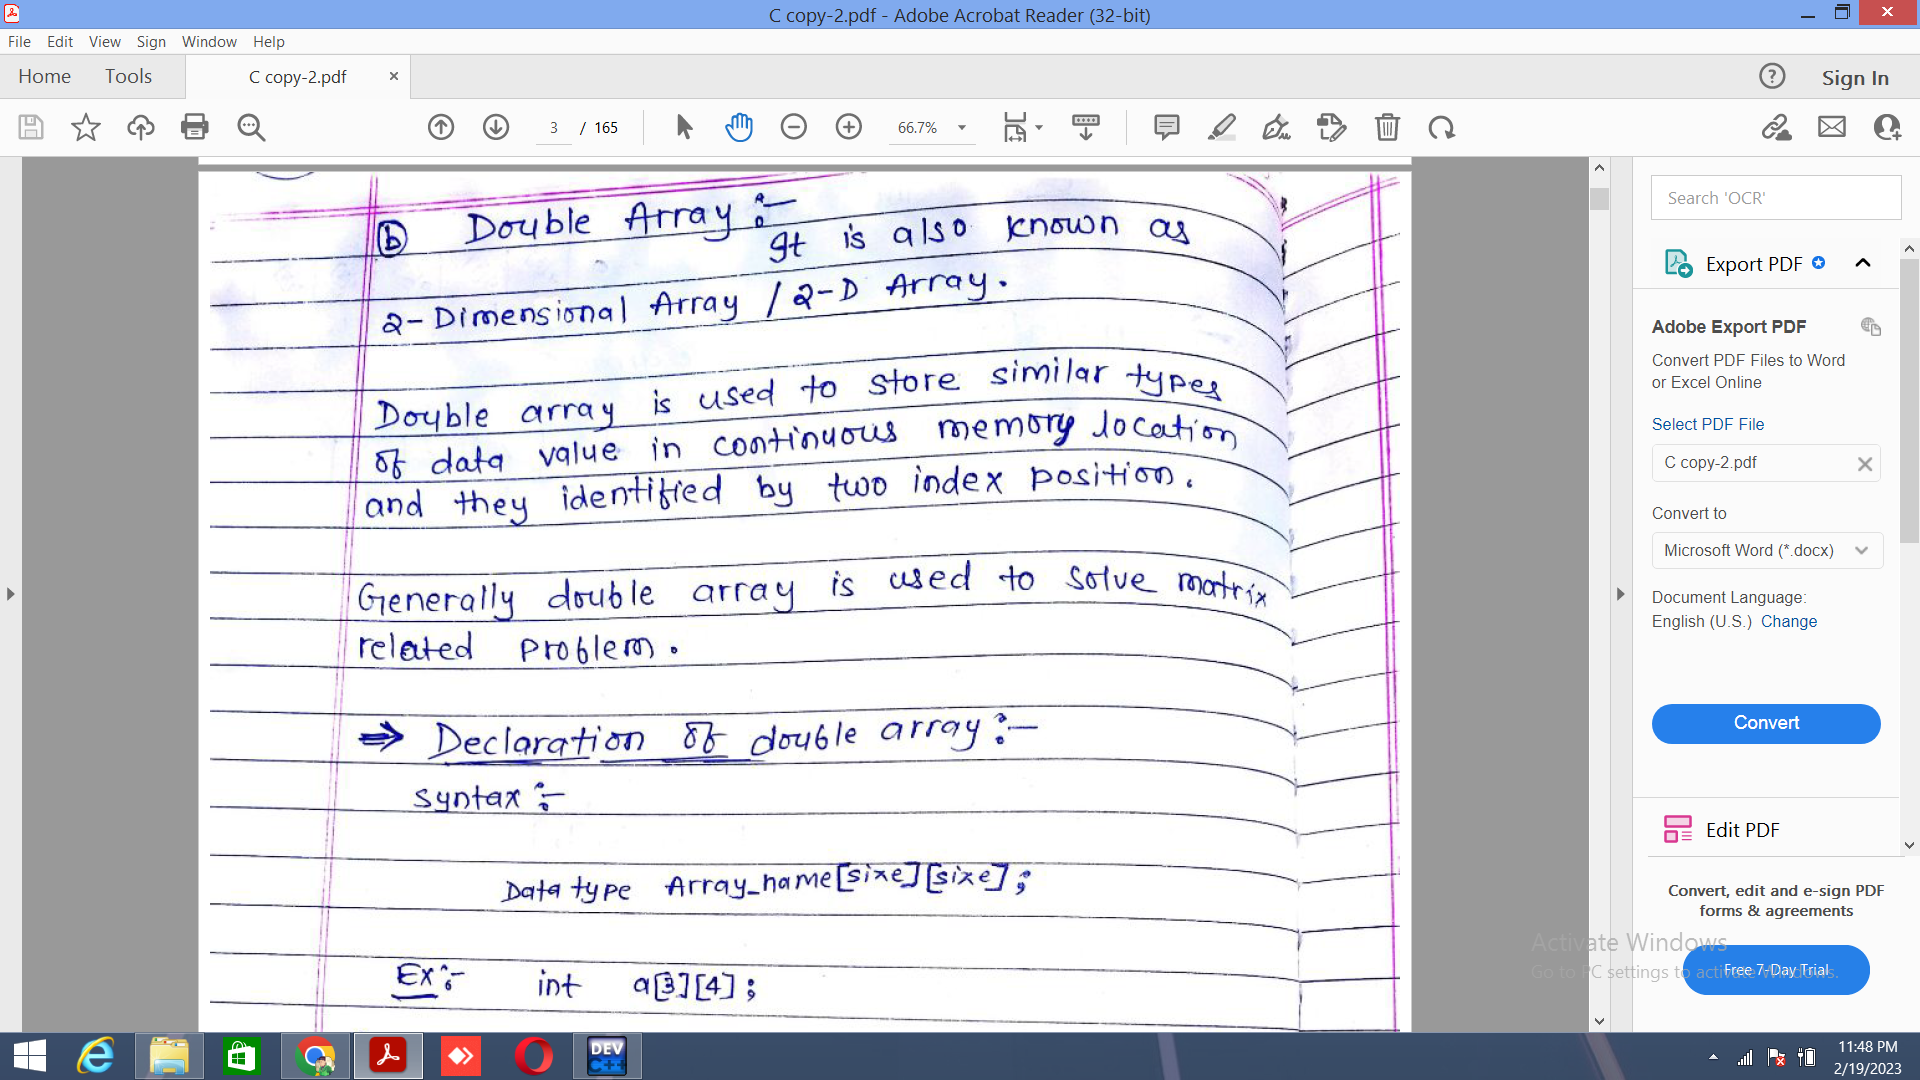 C copy-2.pdf - Adobe Acrobat Reader (32-bit)
File Edit View Sign Window Help
Home Tools C copy-2.pdf × Sign In
3 / 165 66.7%
(b) Double Array :-
It is also known as
2-Dimensional Array / 2-D Array.
Double array is used to store similar types
of data value in continuous memory location
and they identified by two index position.
Generally double array is used to solve matrix
related problem.
⇒ Declaration of double array :-
Syntax :-
Data type Array_name[size][size];
Ex :- int a[3][4];
Search 'OCR'
Export PDF
Adobe Export PDF
Convert PDF Files to Word
or Excel Online
Select PDF File
C copy-2.pdf
Convert to
Microsoft Word (*.docx)
Document Language:
English (U.S.) Change
Convert
Edit PDF
Convert, edit and e-sign PDF
forms & agreements
Free 7-Day Trial
Activate Windows
Go to PC settings to activate Windows.
DEV
C++
11:48 PM
2/19/2023